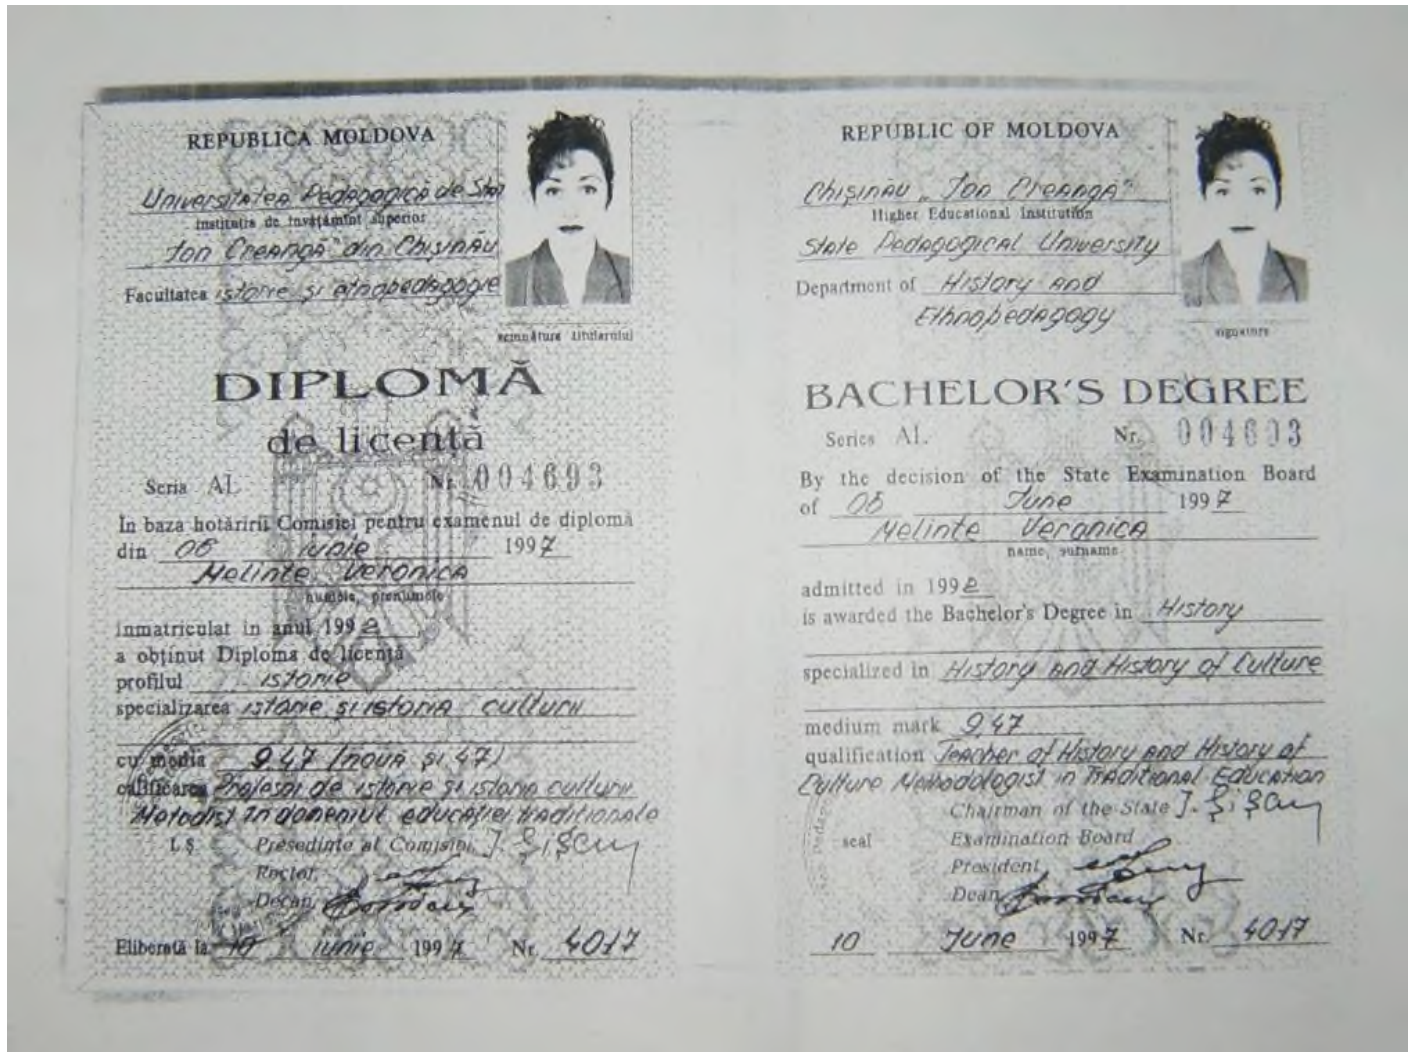 REPUBLICA MOLDOVA
Universitatea Pedagogică de Stat
Instituția de învățămînt superior
"Ion Creangă" din Chișinău
Facultatea istorie și etnopedagogie
semnătura titularului
DIPLOMĂ
de licență
Seria AL Nr. 004693
In baza hotărîrii Comisiei pentru examenul de diplomă
din 06 iunie 1997
Melinte Veronica
numele, prenumele
inmatriculat in anul 1992
a obținut Diploma de licență
profilul istorie
specializarea istorie și istoria culturii
cu media 9,47 (nouă și 47)
calificarea Profesor de istorie și istoria culturii
Metodist în domeniul educației tradiționale
L.Ș. Președinte al Comisiei I. Șișcanu
Rector
Decan
Eliberată la 10 iunie 1997 Nr. 4017
REPUBLIC OF MOLDOVA
Chișinău "Ion Creangă"
Higher Educational Institution
State Pedagogical University
Department of History and
Ethnopedagogy
signature
BACHELOR'S DEGREE
Series AL Nr. 004693
By the decision of the State Examination Board
of 06 June 1997
Melinte Veronica
name, surname
admitted in 1992
is awarded the Bachelor's Degree in History
specialized in History and History of Culture
medium mark 9,47
qualification Teacher of History and History of
Culture Methodologist in Traditional Education
Chairman of the State I. Șișcanu
seal Examination Board
President
Dean
10 June 1997 Nr. 4017